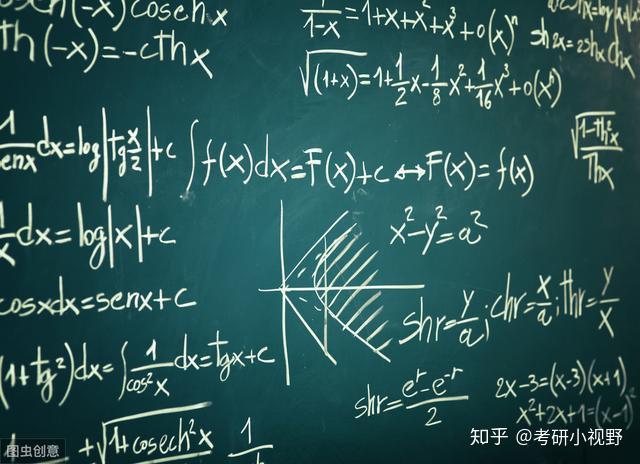 (-x) cosech x
th(-x)=-cthx
1/(1-x)=1+x+x²+x³+o(x)ⁿ
√(1+x)=1+1/2x-1/8x²+1/16x³+o(xⁿ)
sh2x=2shx chx
dx=log|tg x/2|+c
∫f(x)dx=F(x)+c↔F(x)=f(x)
√(1-th²x)/Thx
1/x dx=log|x|+c
x²-y²=a²
cosxdx=senx+c
shr=y/a; chr=x/a; thr=y/x
(1+tg²)dx=∫1/cos²x dx=tgx+c
shr=(eʳ-e⁻ʳ)/2
2x-3=(x-3)(x+1)
x²+2x+1=(x-1)²
+√(1+cosech²x
1
图虫创意
知乎 @考研小视野